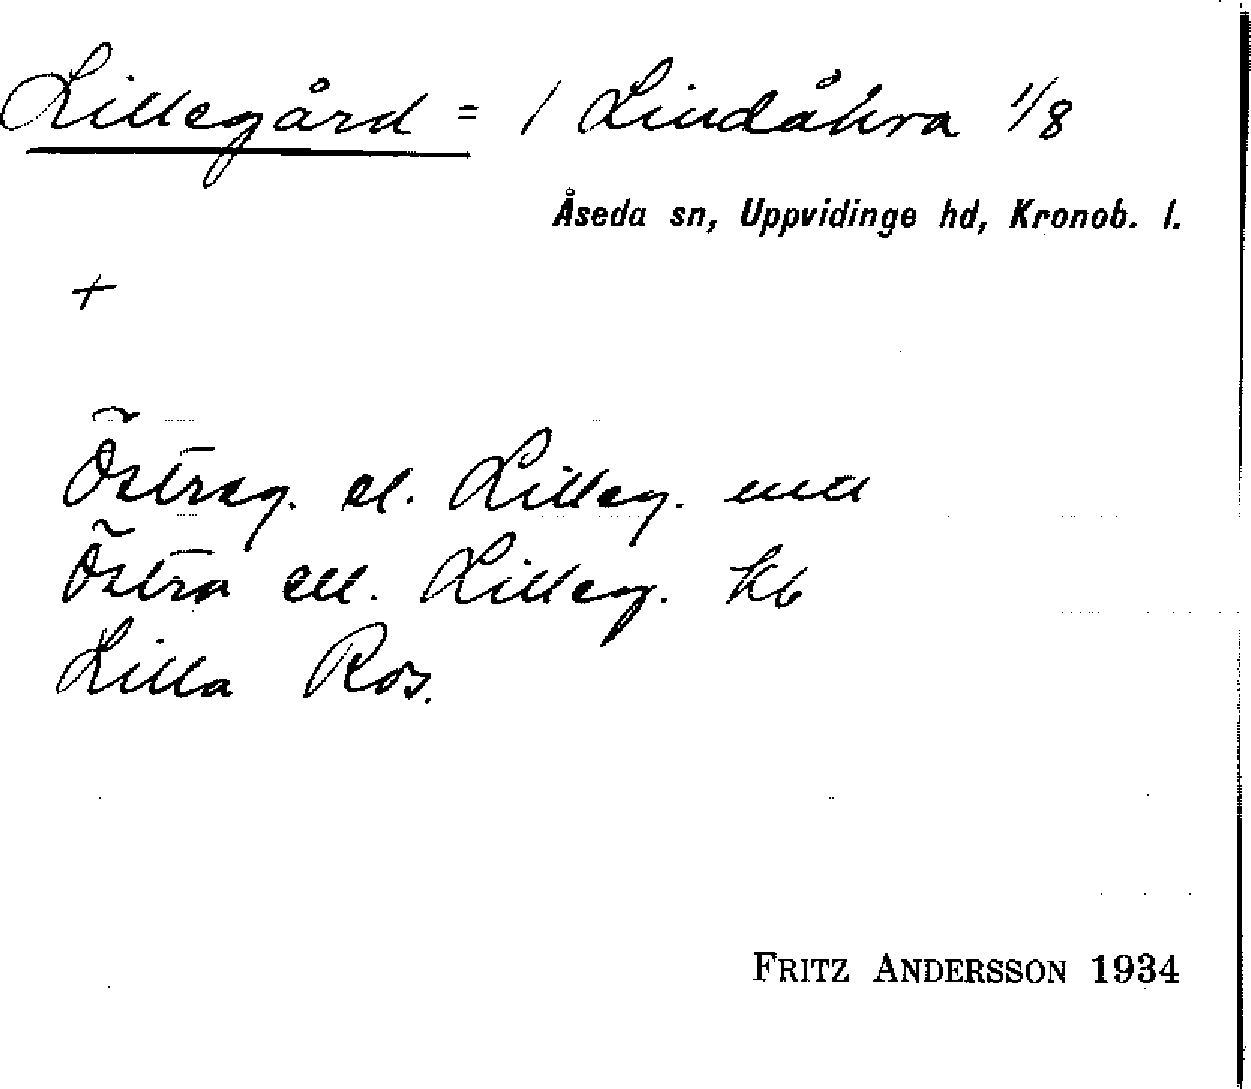 Lillegård = 1 Lindåkra 1/8
Åseda sn, Uppvidinge hd, Kronob. l.
+
Östreg. el. Lilleg.
Östra ell. Lilleg. kb
Lilla Ros.
FRITZ ANDERSSON 1934